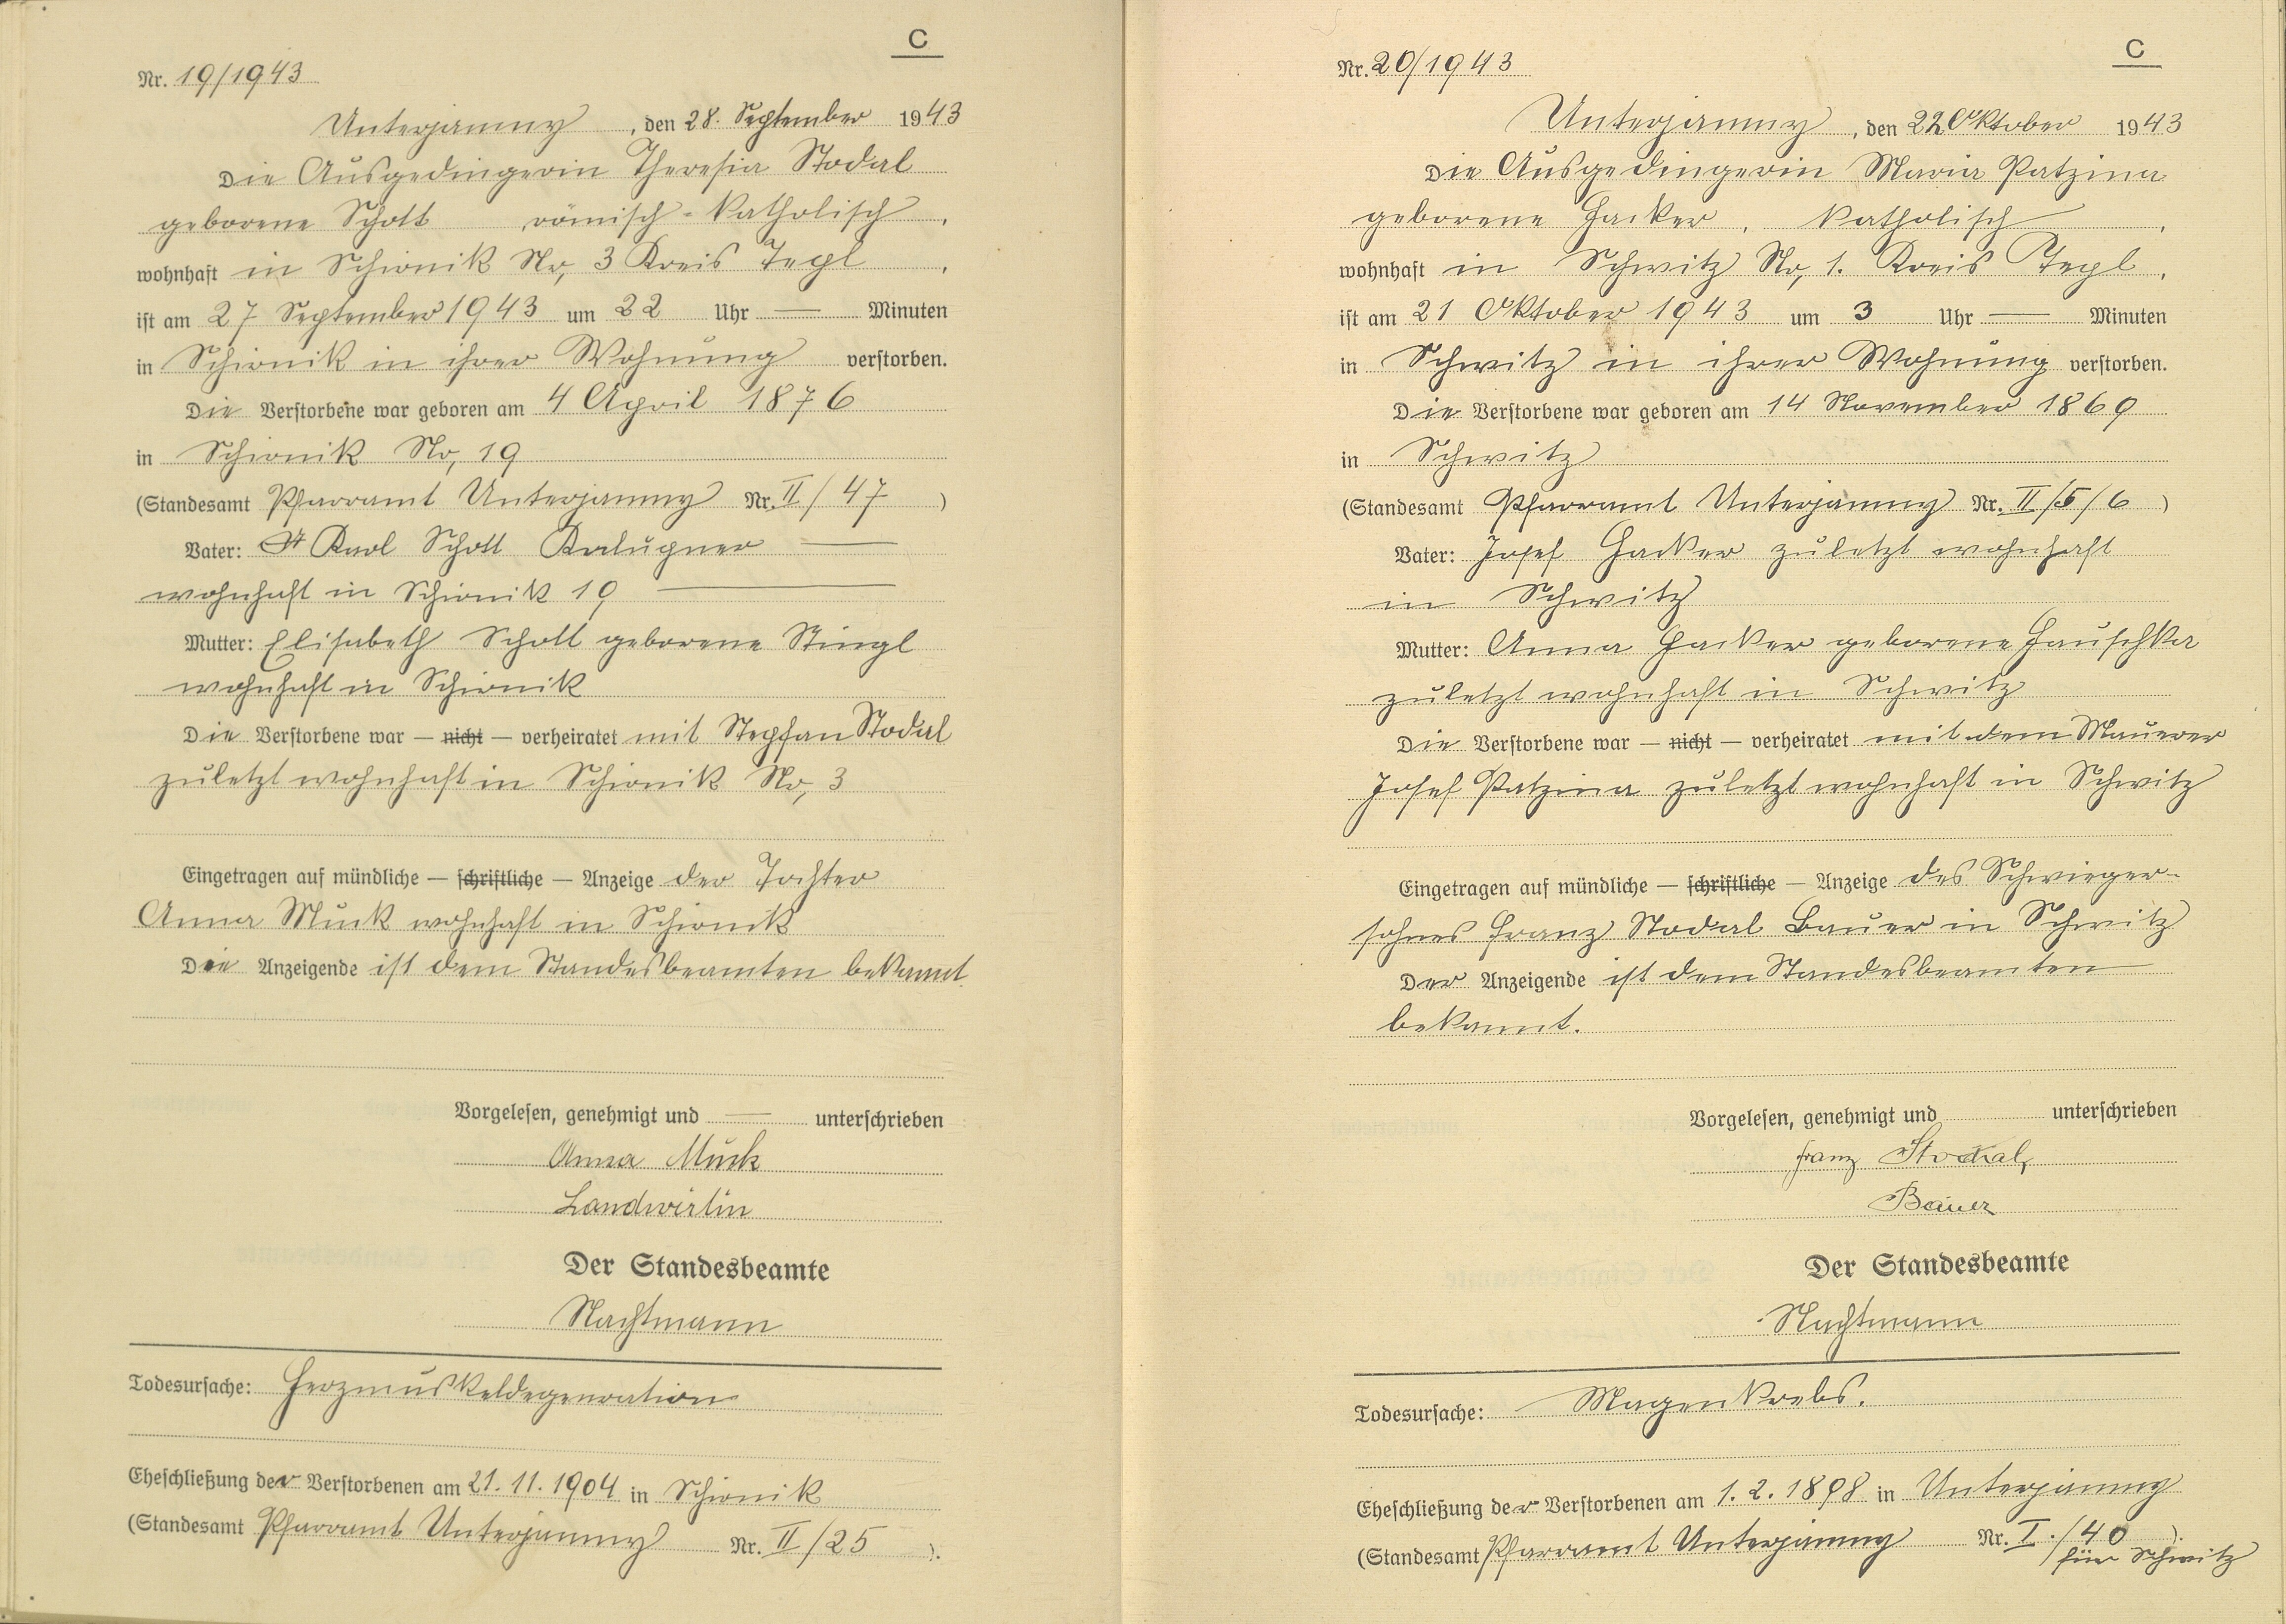 C
Nr. 19/1943
Unterjamny, den 28. September 1943
Die Ausgedingerin Theresia Stodal
geborene Schott, römisch-katholisch,
wohnhaft in Schirnik No, 3 Kreis Tepl,
ist am 27 September 1943 um 22 Uhr — Minuten
in Schirnik in ihrer Wohnung verstorben.
Die Verstorbene war geboren am 4 April 1876
in Schirnik No, 19
(Standesamt Pfarramt Unterjamny Nr. II/47)
Vater: Karl Schott
wohnhaft in Schirnik 19
Mutter: Elisabeth Schott geborene Stingl
wohnhaft in Schirnik
Die Verstorbene war — nicht — verheiratet mit Stepfan Stodal
zuletzt wohnhaft in Schirnik No, 3
Eingetragen auf mündliche — schriftliche — Anzeige der Tochter
Anna Muck wohnhaft in Schirnik
Die Anzeigende ist dem Standesbeamten bekannt
Vorgelesen, genehmigt und — unterschrieben
Anna Muck
Landwirtin
Der Standesbeamte
Nachtmann
Todesursache: Herzmuskeldegenration
Eheschließung der Verstorbenen am 21.11.1904 in Schirnik
(Standesamt Pfarramt Unterjamny Nr. II/25).
C
Nr. 20/1943
Unterjamny, den 22 Oktober 1943
Die Ausgedingerin Maria Patzina
geborene Hacker, katholisch,
wohnhaft in Schwitz No, 1. Kreis Tepl,
ist am 21 Oktober 1943 um 3 Uhr — Minuten
in Schwitz in ihrer Wohnung verstorben.
Die Verstorbene war geboren am 14 November 1869
in Schwitz
(Standesamt Pfarramt Unterjamny Nr. II/5/6)
Vater: Josef Hacker zuletzt wohnhaft
in Schwitz
Mutter: Anna Hacker geborene Hauschka
zuletzt wohnhaft in Schwitz
Die Verstorbene war — nicht — verheiratet mit dem Maurer
Josef Patzina zuletzt wohnhaft in Schwitz
Eingetragen auf mündliche — schriftliche — Anzeige des Schwieger-
sohnes Franz Stodal Bauer in Schwitz
Der Anzeigende ist dem Standesbeamten
bekannt.
Vorgelesen, genehmigt und unterschrieben
Franz Stodal,
Bauer
Der Standesbeamte
Nachtmann
Todesursache: Magenkrebs.
Eheschließung der Verstorbenen am 1.2.1898 in Unterjamny
(Standesamt Pfarramt Unterjamny Nr. I./40).
für Schwitz